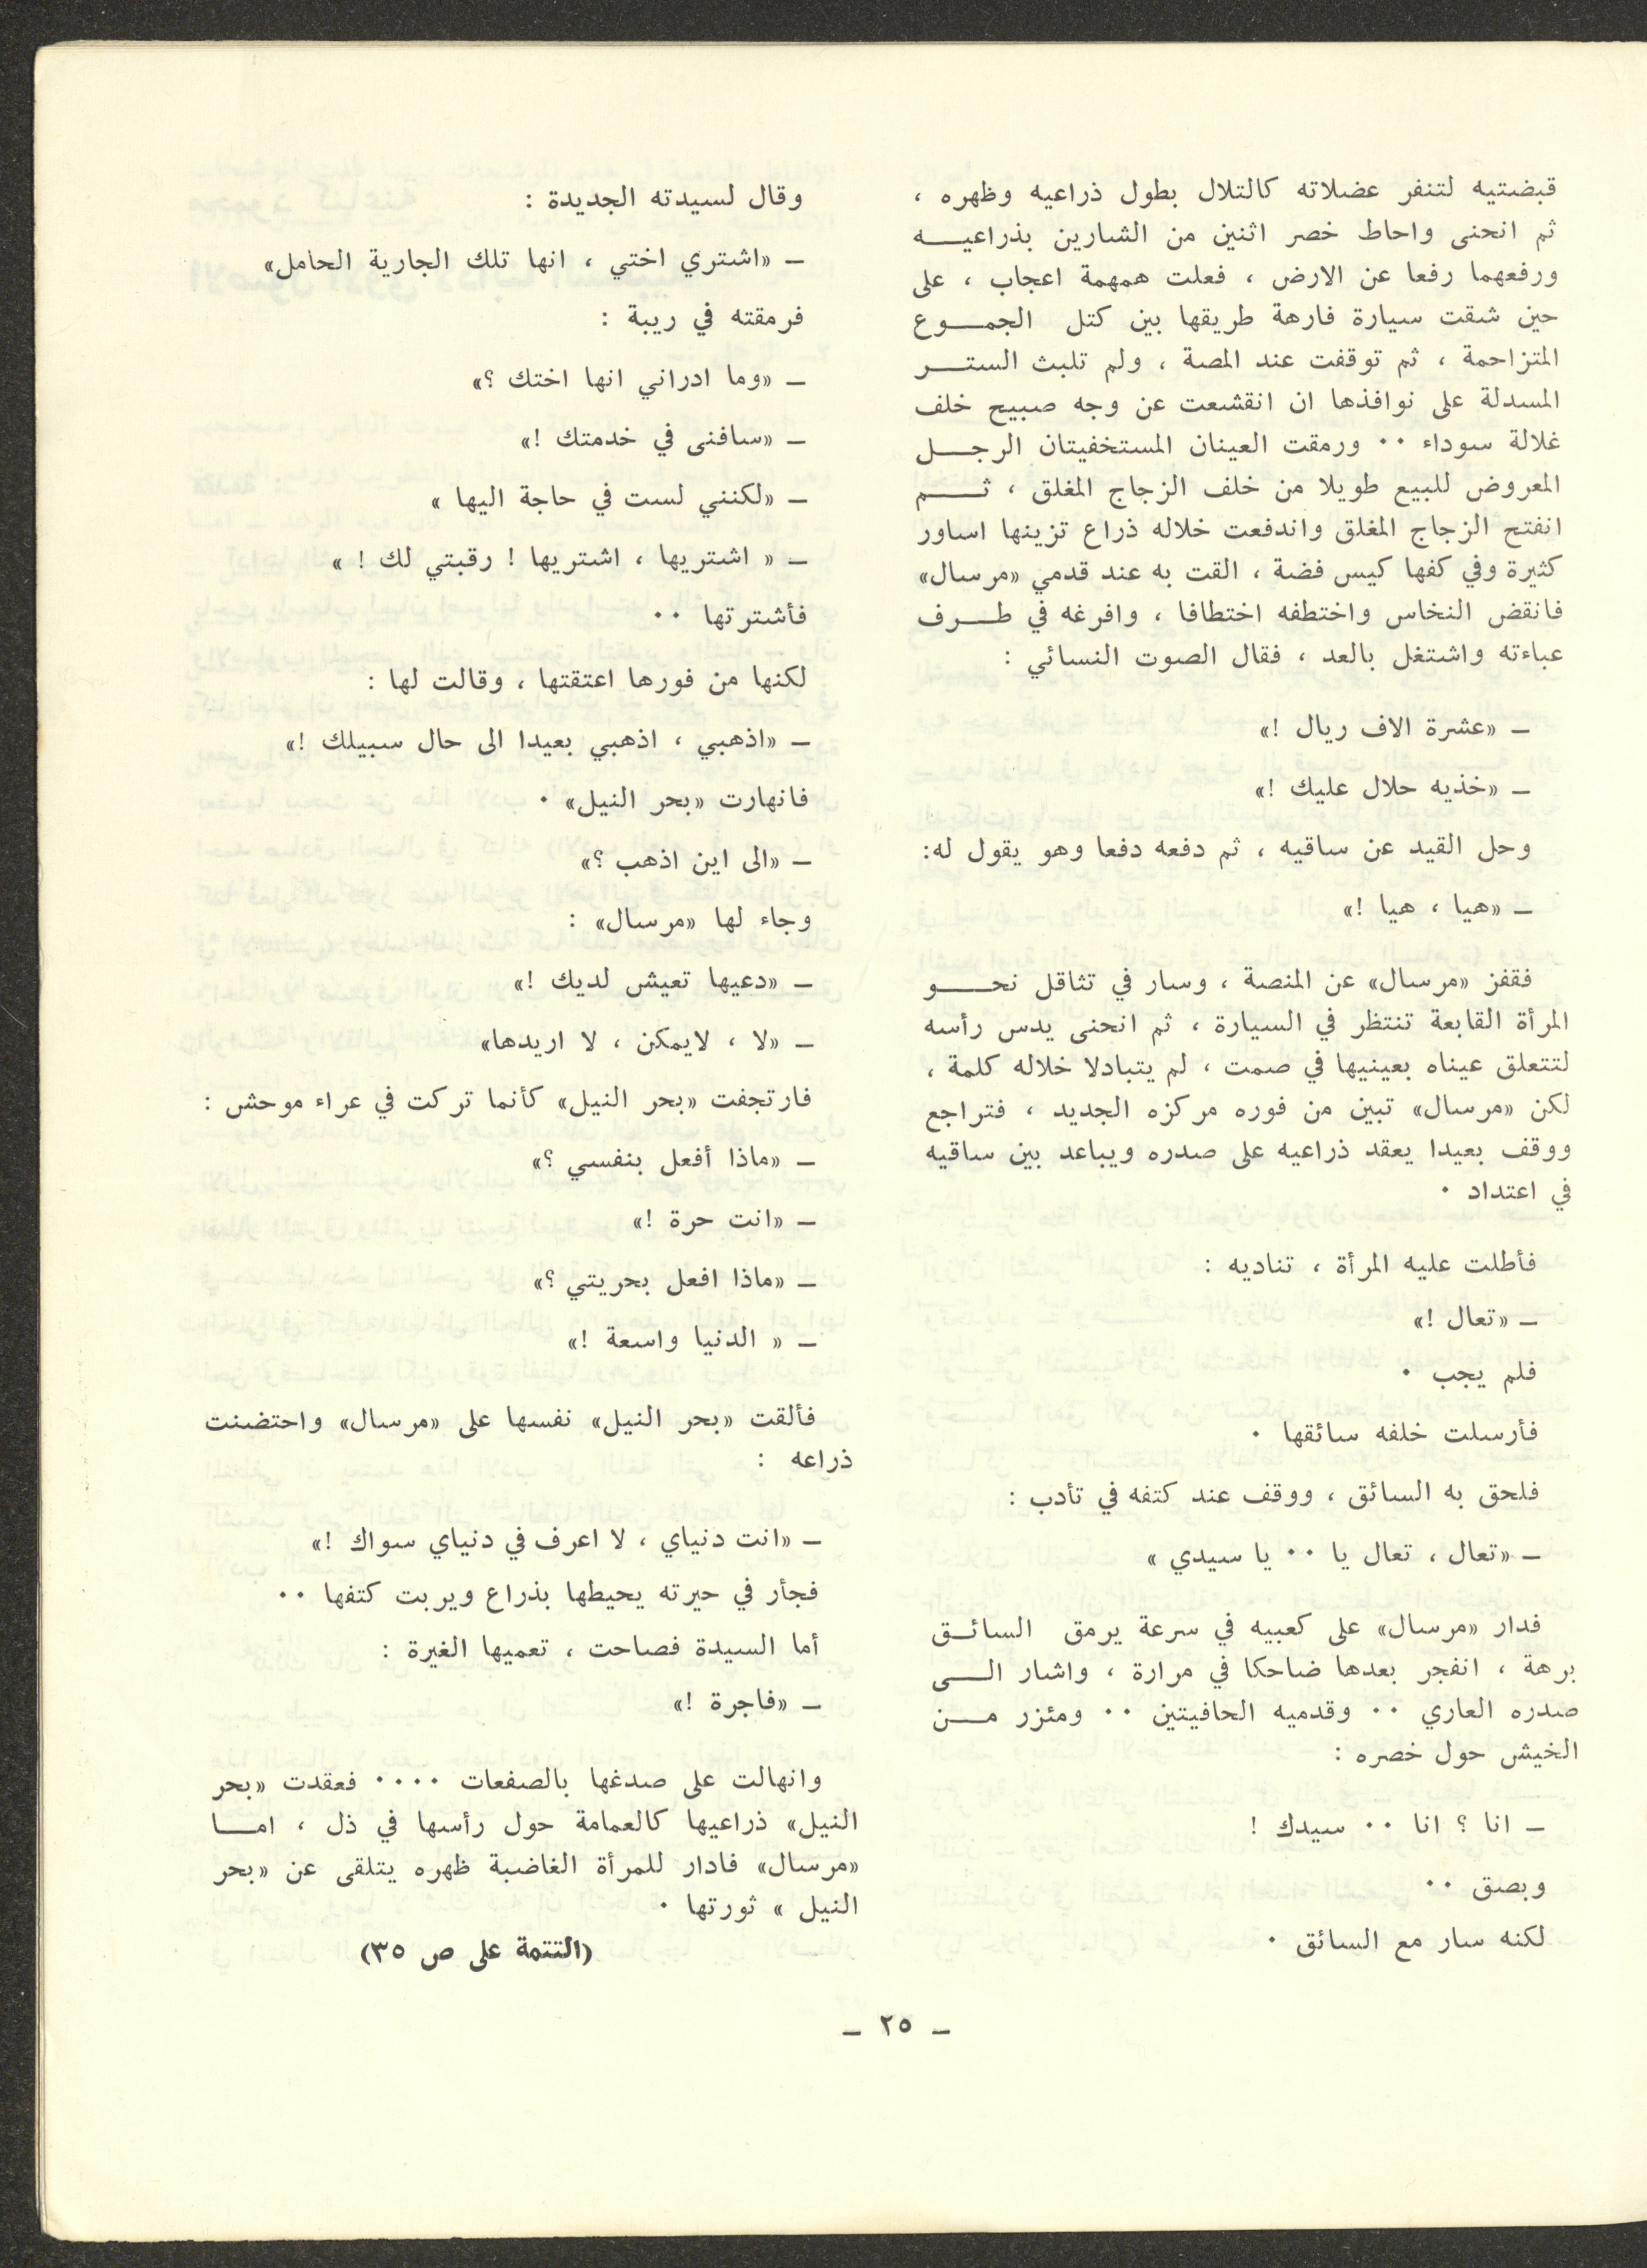 قبضتيه لتنفر عضلاته كالتلال بطول ذراعيه وظهره ،
ثم انحنى واحاط خصر اثنين من الشارين بذراعيــــه
ورفعهما رفعا عن الارض ، فعلت همهمة اعجاب ، على
حين شقت سيارة فارهة طريقها بين كتل الجمــــوع
المتزاحمة ، ثم توقفت عند المصة ، ولم تلبث الستــــر
المسدلة على نوافذها ان انقشعت عن وجه صبيح خلف
غلالة سوداء ٠٠ ورمقت العينان المستخفيتان الرجــــل
المعروض للبيع طويلا من خلف الزجاج المغلق ، ثــــم
انفتح الزجاج المغلق واندفعت خلاله ذراع تزينها اساور
كثيرة وفي كفها كيس فضة ، القت به عند قدمي «مرسال»
فانقض النخاس واختطفه اختطافا ، وافرغه في طــــرف
عباءته واشتغل بالعد ، فقال الصوت النسائي :
ــ «عشرة الاف ريال !»
ــ «خذيه حلال عليك !»
وحل القيد عن ساقيه ، ثم دفعه دفعا وهو يقول له:
ــ «هيا ، هيا !»
فقفز «مرسال» عن المنصة ، وسار في تثاقل نحــــو
المرأة القابعة تنتظر في السيارة ، ثم انحنى يدس رأسه
لتتعلق عيناه بعينيها في صمت ، لم يتبادلا خلاله كلمة ،
لكن «مرسال» تبين من فوره مركزه الجديد ، فتراجع
ووقف بعيدا يعقد ذراعيه على صدره ويباعد بين ساقيه
في اعتداد ٠
فأطلت عليه المرأة ، تناديه :
ــ «تعال !»
فلم يجب ٠
فأرسلت خلفه سائقها ٠
فلحق به السائق ، ووقف عند كتفه في تأدب :
ــ «تعال ، تعال يا ٠٠ يا سيدي »
فدار «مرسال» على كعبيه في سرعة يرمق السائــق
برهة ، انفجر بعدها ضاحكا في مرارة ، واشار الــــى
صدره العاري ٠٠ وقدميه الحافيتين ٠٠ ومئزر مــــن
الخيش حول خصره :
ــ انا ؟ انا ٠٠ سيدك !
وبصق ٠٠
لكنه سار مع السائق ٠
وقال لسيدته الجديدة :
ــ «اشتري اختي ، انها تلك الجارية الحامل»
فرمقته في ريبة :
ــ «وما ادراني انها اختك ؟»
ــ «سافنى في خدمتك !»
ــ «لكنني لست في حاجة اليها »
ــ « اشتريها ، اشتريها ! رقبتي لك ! »
فأشترتها ٠٠
لكنها من فورها اعتقتها ، وقالت لها :
ــ «اذهبي ، اذهبي بعيدا الى حال سبيلك !»
فانهارت «بحر النيل» ٠
ــ «الى اين اذهب ؟»
وجاء لها «مرسال» :
ــ «دعيها تعيش لديك !»
ــ «لا ، لايمكن ، لا اريدها»
فارتجفت «بحر النيل» كأنما تركت في عراء موحش :
ــ «ماذا أفعل بنفسي ؟»
ــ «انت حرة !»
ــ «ماذا افعل بحريتي ؟»
ــ « الدنيا واسعة !»
فألقت «بحر النيل» نفسها على «مرسال» واحتضنت
ذراعه :
ــ «انت دنياي ، لا اعرف في دنياي سواك !»
فجأر في حيرته يحيطها بذراع ويربت كتفها ٠٠
أما السيدة فصاحت ، تعميها الغيرة :
ــ «فاجرة !»
وانهالت على صدغها بالصفعات ٠٠٠٠ فعقدت «بحر
النيل» ذراعيها كالعمامة حول رأسها في ذل ، امــــا
«مرسال» فادار للمرأة الغاضبة ظهره يتلقى عن «بحر
النيل » ثورتها ٠
(التتمة على ص ٣٥)
ــ ٢٥ ــ